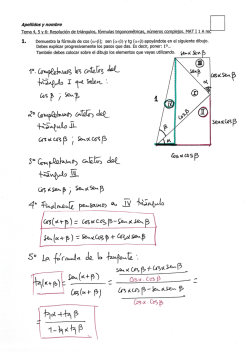 Apellidos y nombre
Tema 4, 5 y 6: Resolución de triángulos, fórmulas trigonométricas, números complejos. MAT I 1 A
1. Demuestra la fórmula de cos (α+β), sen (α+β) y tg (α+β) apoyándote en el siguiente dibujo.
Debes explicar progresivamente los pasos que das. Es decir, poner: 1º...
También debes colocar sobre el dibujo los elementos que vayas utilizando.
1º Completamos los catetos del
triángulo I que valen:
cos β ; sen β
2º Completamos catetos del
triángulo II.
cos α cos β ; sen α cos β
3º Completamos catetos del
triángulo III.
cos α sen β ; sen α sen β
4º Finalmente pensamos en IV triángulo
cos(α+β) = cos α cos β - sen α sen β
sen(α+β) = sen α cos β + cos α sen β
5º La fórmula de la tangente:
tg(α+β) = sen(α+β) / cos(α+β) = sen α cos β + cos α sen β / cos α cos β / cos α cos β - sen α sen β / cos α cos β =
= tg α + tg β / 1 - tg α tg β
sen α sen β
cos α sen β
sen α cos β
cos α cos β
I
II
III
IV